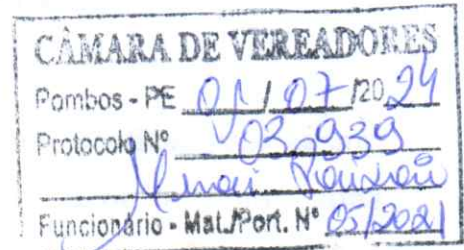 CÂMARA DE VEREADORES
Pombos - PE 01/07/2024
Protocolo Nº 03.939
Funcionário - Mat./Port. Nº 05/2021